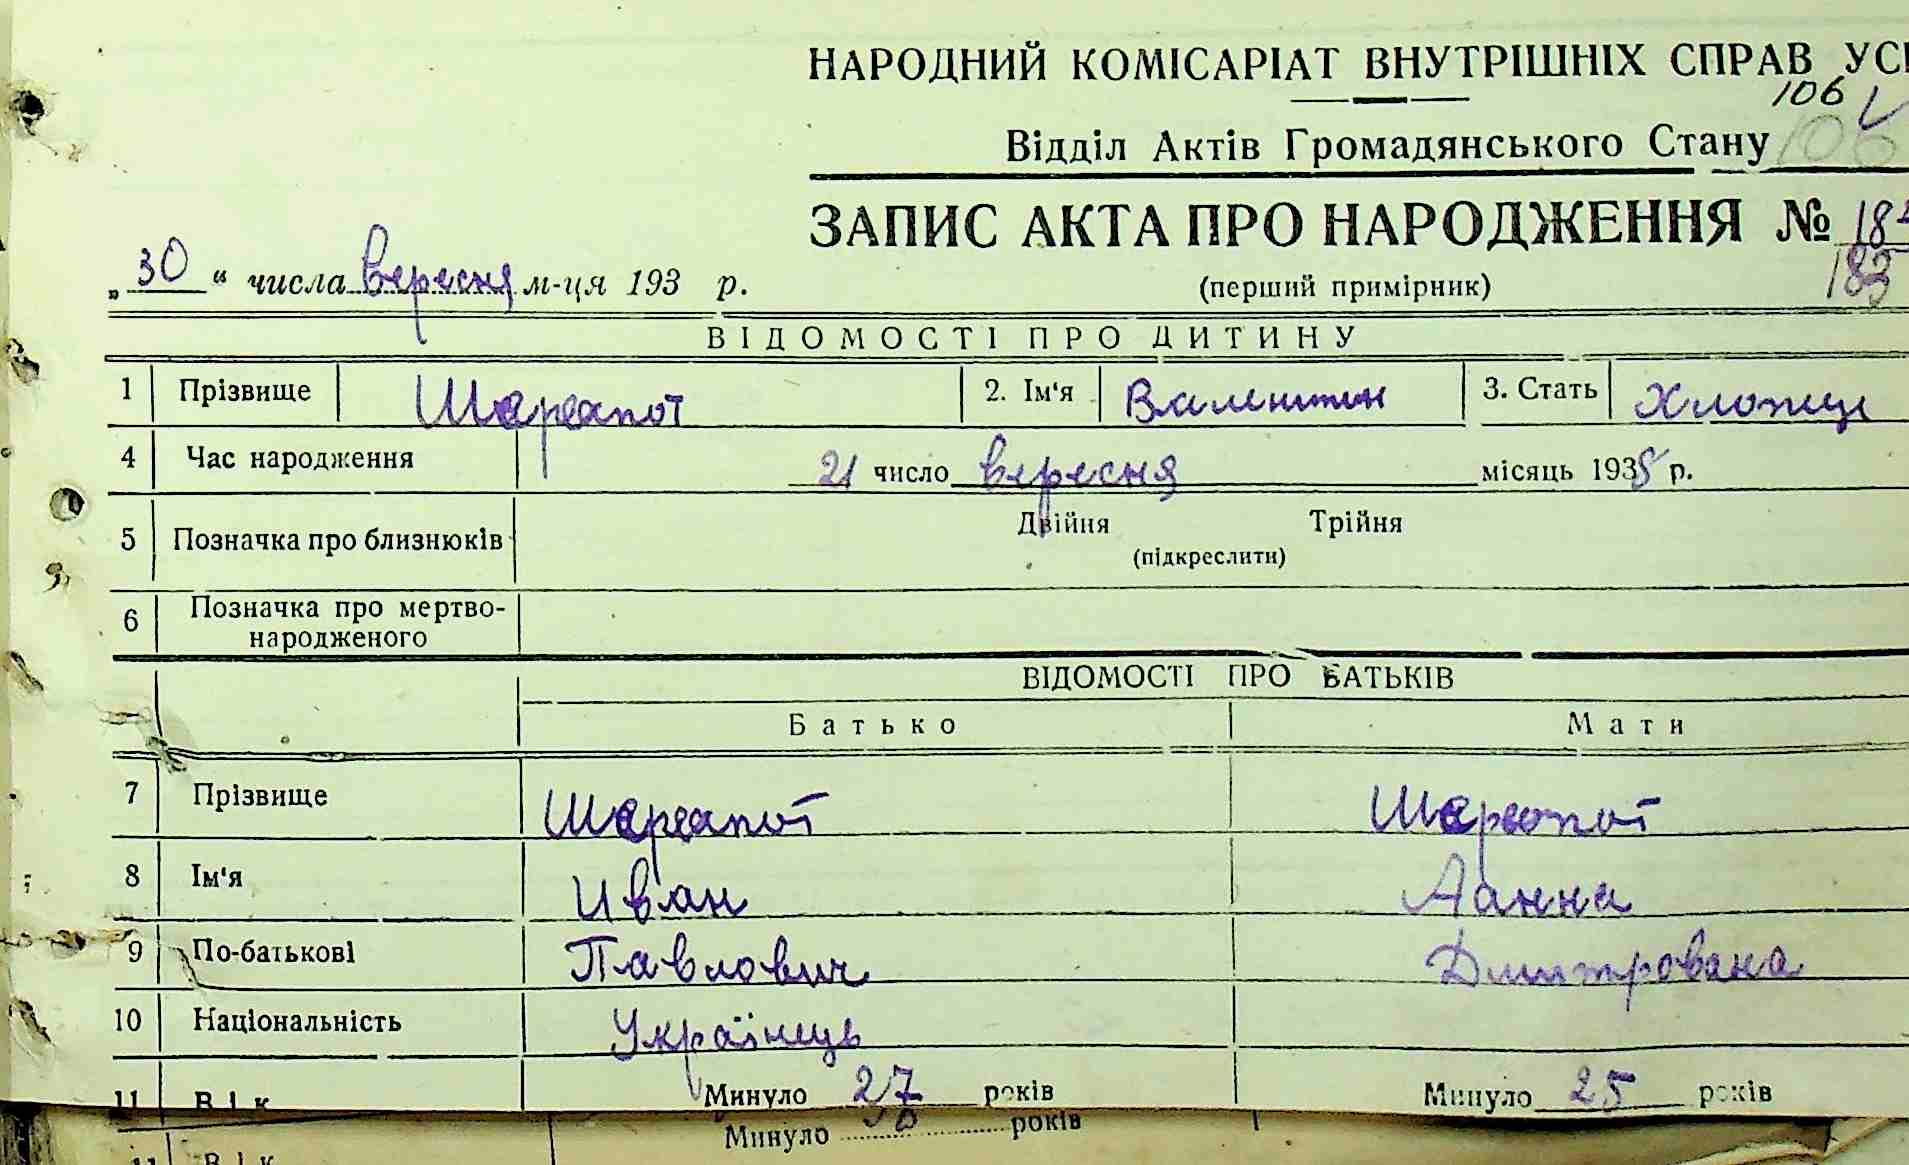 НАРОДНИЙ КОМІСАРІАТ ВНУТРІШНІХ СПРАВ УС
106
Відділ Актів Громадянського Стану 106
ЗАПИС АКТА ПРО НАРОДЖЕННЯ № 18
„30“ числа вересня м-ця 193 р.
(перший примірник) 183
ВІДОМОСТІ ПРО ДИТИНУ
1 Прізвище 2. Ім'я Валентин 3. Стать Хлопець
4 Час народження 21 число вересня місяць 1935 р.
5 Позначка про близнюків Двійня Трійня
(підкреслити)
6 Позначка про мертво-
народженого
ВІДОМОСТІ ПРО БАТЬКІВ
Батько Мати
7 Прізвище
8 Ім'я Иван Ганна
9 По-батькові Павлович Дмитрована
10 Національність Українець
11 Вік Минуло 27 років Минуло 25 років
11 Вік Минуло років